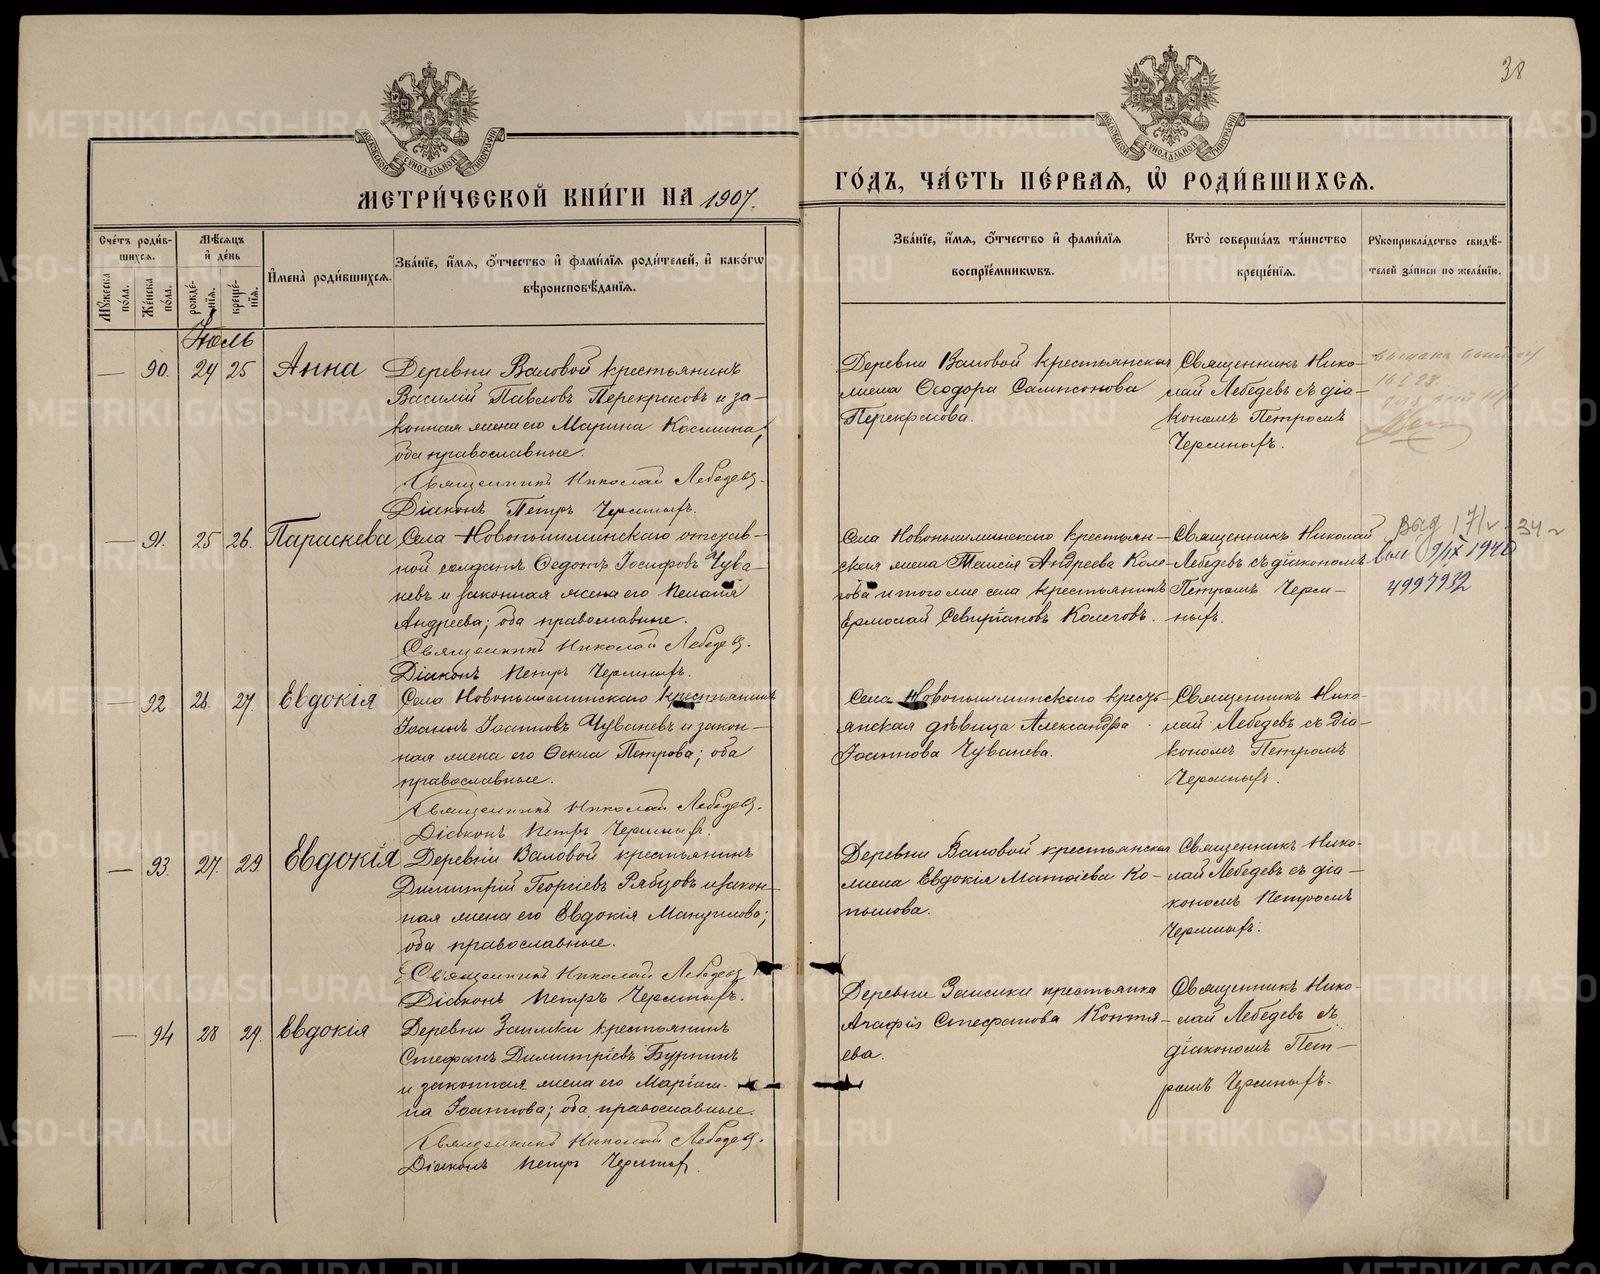 38
МЕТРИ́ЧЕСКОЙ КНИ́ГИ НА 1907.
ГО́ДЪ, ЧА́СТЬ ПЕ́РВАЯ, Ѡ҆ РОДИ́ВШИХСЯ.
Сче́тъ роди́вшихся.
Мꙋ́жеска по́ла.
Же́нска по́ла.
Мѣ́сяцъ и҆ де́нь
рожде́нїя.
креще́нїя.
И҆мена̀ роди́вшихся.
Зва́нїе, и҆́мя, ѻ҆́тчество и҆ фами́лїя роди́телей, и҆ како́гѡ
вѣроисповѣ́данїя.
Зва́нїе, и҆́мя, ѻ҆́тчество и҆ фами́лїя
воспрїе́мникѡвъ.
Кто̀ соверша́лъ та́инство
креще́нїя.
Рꙋкоприкла́дство свидѣ́-
телей за́писи по жела́нїю.
Іюль
— 90. 24 25 Анна
Деревни Валовой крестьянинъ
Василій Павловъ Перекрасовъ и за-
конная жена его Марина Космина;
оба православные.
Священникъ Николай Лебедевъ.
Діаконъ Петръ Черемныхъ.
Деревни Валовой крестьянская
жена Ѳеодора Сампсонова
Перекрасова.
Священникъ Нико-
лай Лебедевъ съ діа-
кономъ Петромъ
Черемныхъ.
— 91. 25 26. Параскева
Села Новопышминскаго отстав-
ной солдатъ Ѳедотъ Іосифовъ Чува-
шевъ и законная жена его Пелагія
Андреева; оба православные.
Священникъ Николай Лебедевъ.
Діаконъ Петръ Черемныхъ.
Села Новопышминскаго крестьян-
ская жена Таисія Андреева Коле-
гова и того же села крестьянинъ
Ермолай Севиріановъ Колеговъ.
Священникъ Николай
Лебедевъ съ діакономъ
Петромъ Черем-
ныхъ.
9/IX 1940
— 92 26. 27. Евдокія
Села Новопышминскаго крестьянинъ
Іоаннъ Іоанновъ Чувашевъ и закон-
ная жена его Ѳекла Петрова; оба
православные.
Священникъ Николай Лебедевъ.
Діаконъ Петръ Черемныхъ.
Села Новопышминскаго кресть-
янская дѣвица Александра
Іоаннова Чувашева.
Священникъ Нико-
лай Лебедевъ съ діа-
кономъ Петромъ
Черемныхъ.
— 93. 27. 29. Евдокія
Деревни Валовой крестьянинъ
Димитрій Георгіевъ Рябцовъ и закон-
ная жена его Евдокія Мануилова;
оба православные.
Священникъ Николай Лебедевъ
Діаконъ Петръ Черемныхъ.
Деревни Валовой крестьянская
жена Евдокія Матѳіева Ко-
пылова.
Священникъ Нико-
лай Лебедевъ съ діа-
кономъ Петромъ
Черемныхъ.
— 94 28 29. Евдокія
Деревни Заимки крестьянинъ
Стефанъ Димитріевъ Бурнинъ
и законная жена его Маріам-
на Іоаннова; оба православные.
Священникъ Николай Лебедевъ.
Діаконъ Петръ Черемныхъ.
Деревни Заимки крестьянка
Агафія Стефанова Контя-
ева.
Священникъ Нико-
лай Лебедевъ съ
діакономъ Пет-
ромъ Черемныхъ.
METRIKI.GASO-URAL.RU